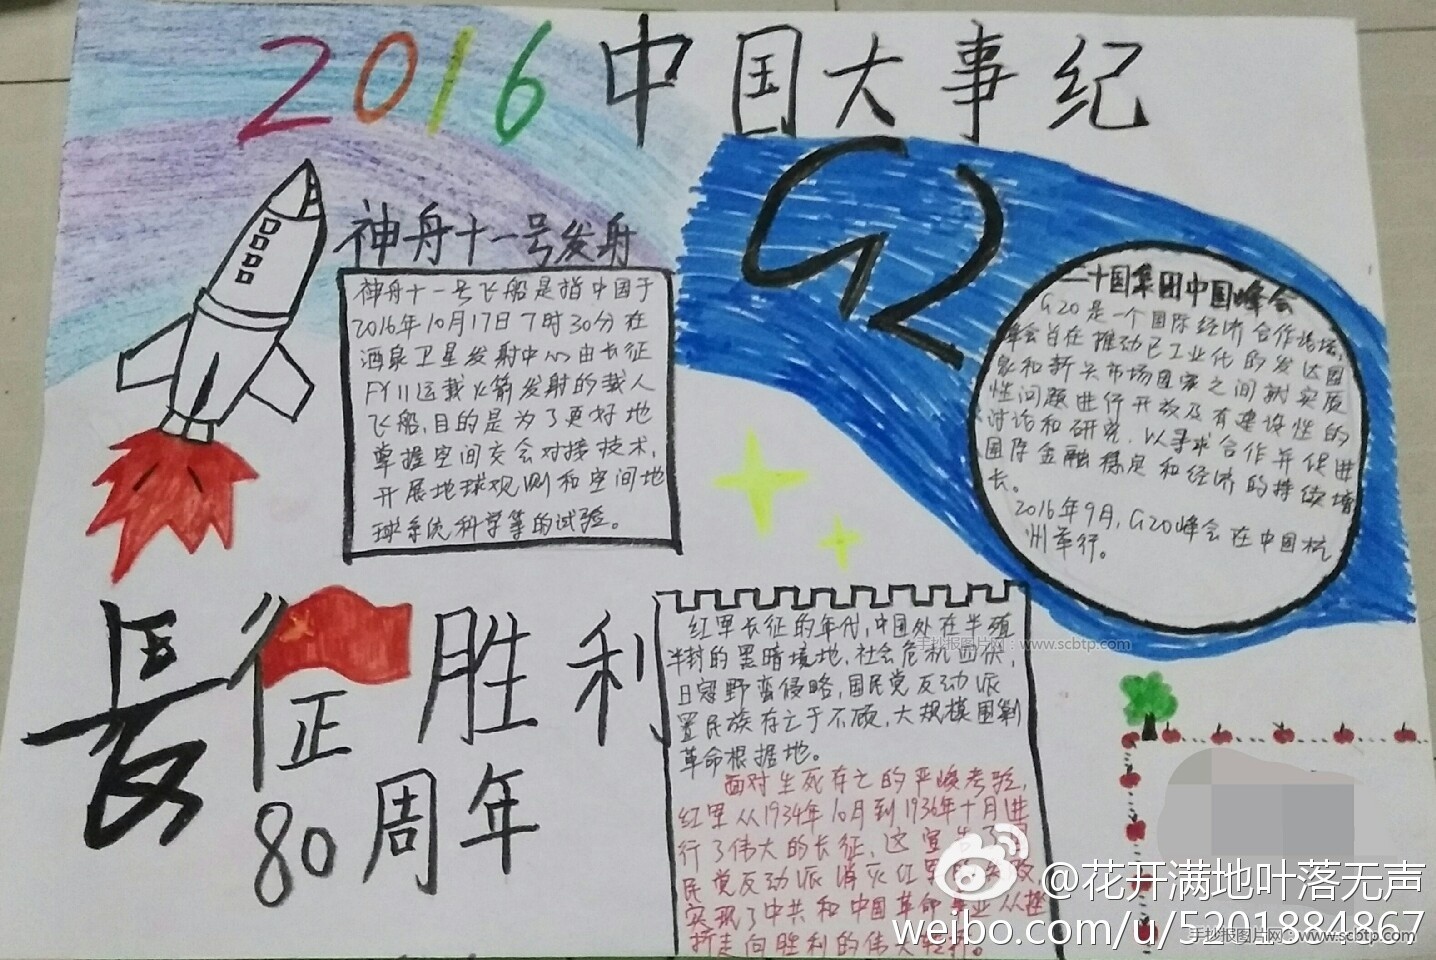 2016中国大事纪
神舟十一号发射
神舟十一号飞船是指中国于
2016年10月17日7时30分在
酒泉卫星发射中心由长征
FY11运载火箭发射的载人
飞船,目的是为了更好地
掌握空间交会对接技术,
开展地球观测和空间地
球系统科学等的试验。
G2
二十国集团中国峰会
G20是一个国际经济合作论坛,
峰会旨在推动已工业化的发达国
家和新兴市场国家之间就实质
性问题进行开放及有建设性的
讨论和研究,以寻求合作并促进
国际金融稳定和经济的持续增
长。
2016年9月,G20峰会在中国杭
州举行。
長征胜利
80周年
红军长征的年代,中国处在半殖
半封的黑暗境地,社会危机四伏,
日寇野蛮侵略,国民党反动派
置民族存亡于不顾,大规模围剿
革命根据地。
面对生死存亡的严峻考验,
红军从1934年10月到1936年十月进
行了伟大的长征,这宣告了国
民党反动派消灭红军的
实现了中共和中国革命事业从挫
折走向胜利的伟大转折。
手抄报图片网:www.scbtp.com
@花开满地叶落无声
weibo.com/u/5201884867
手抄报图片网:www.scbtp.com